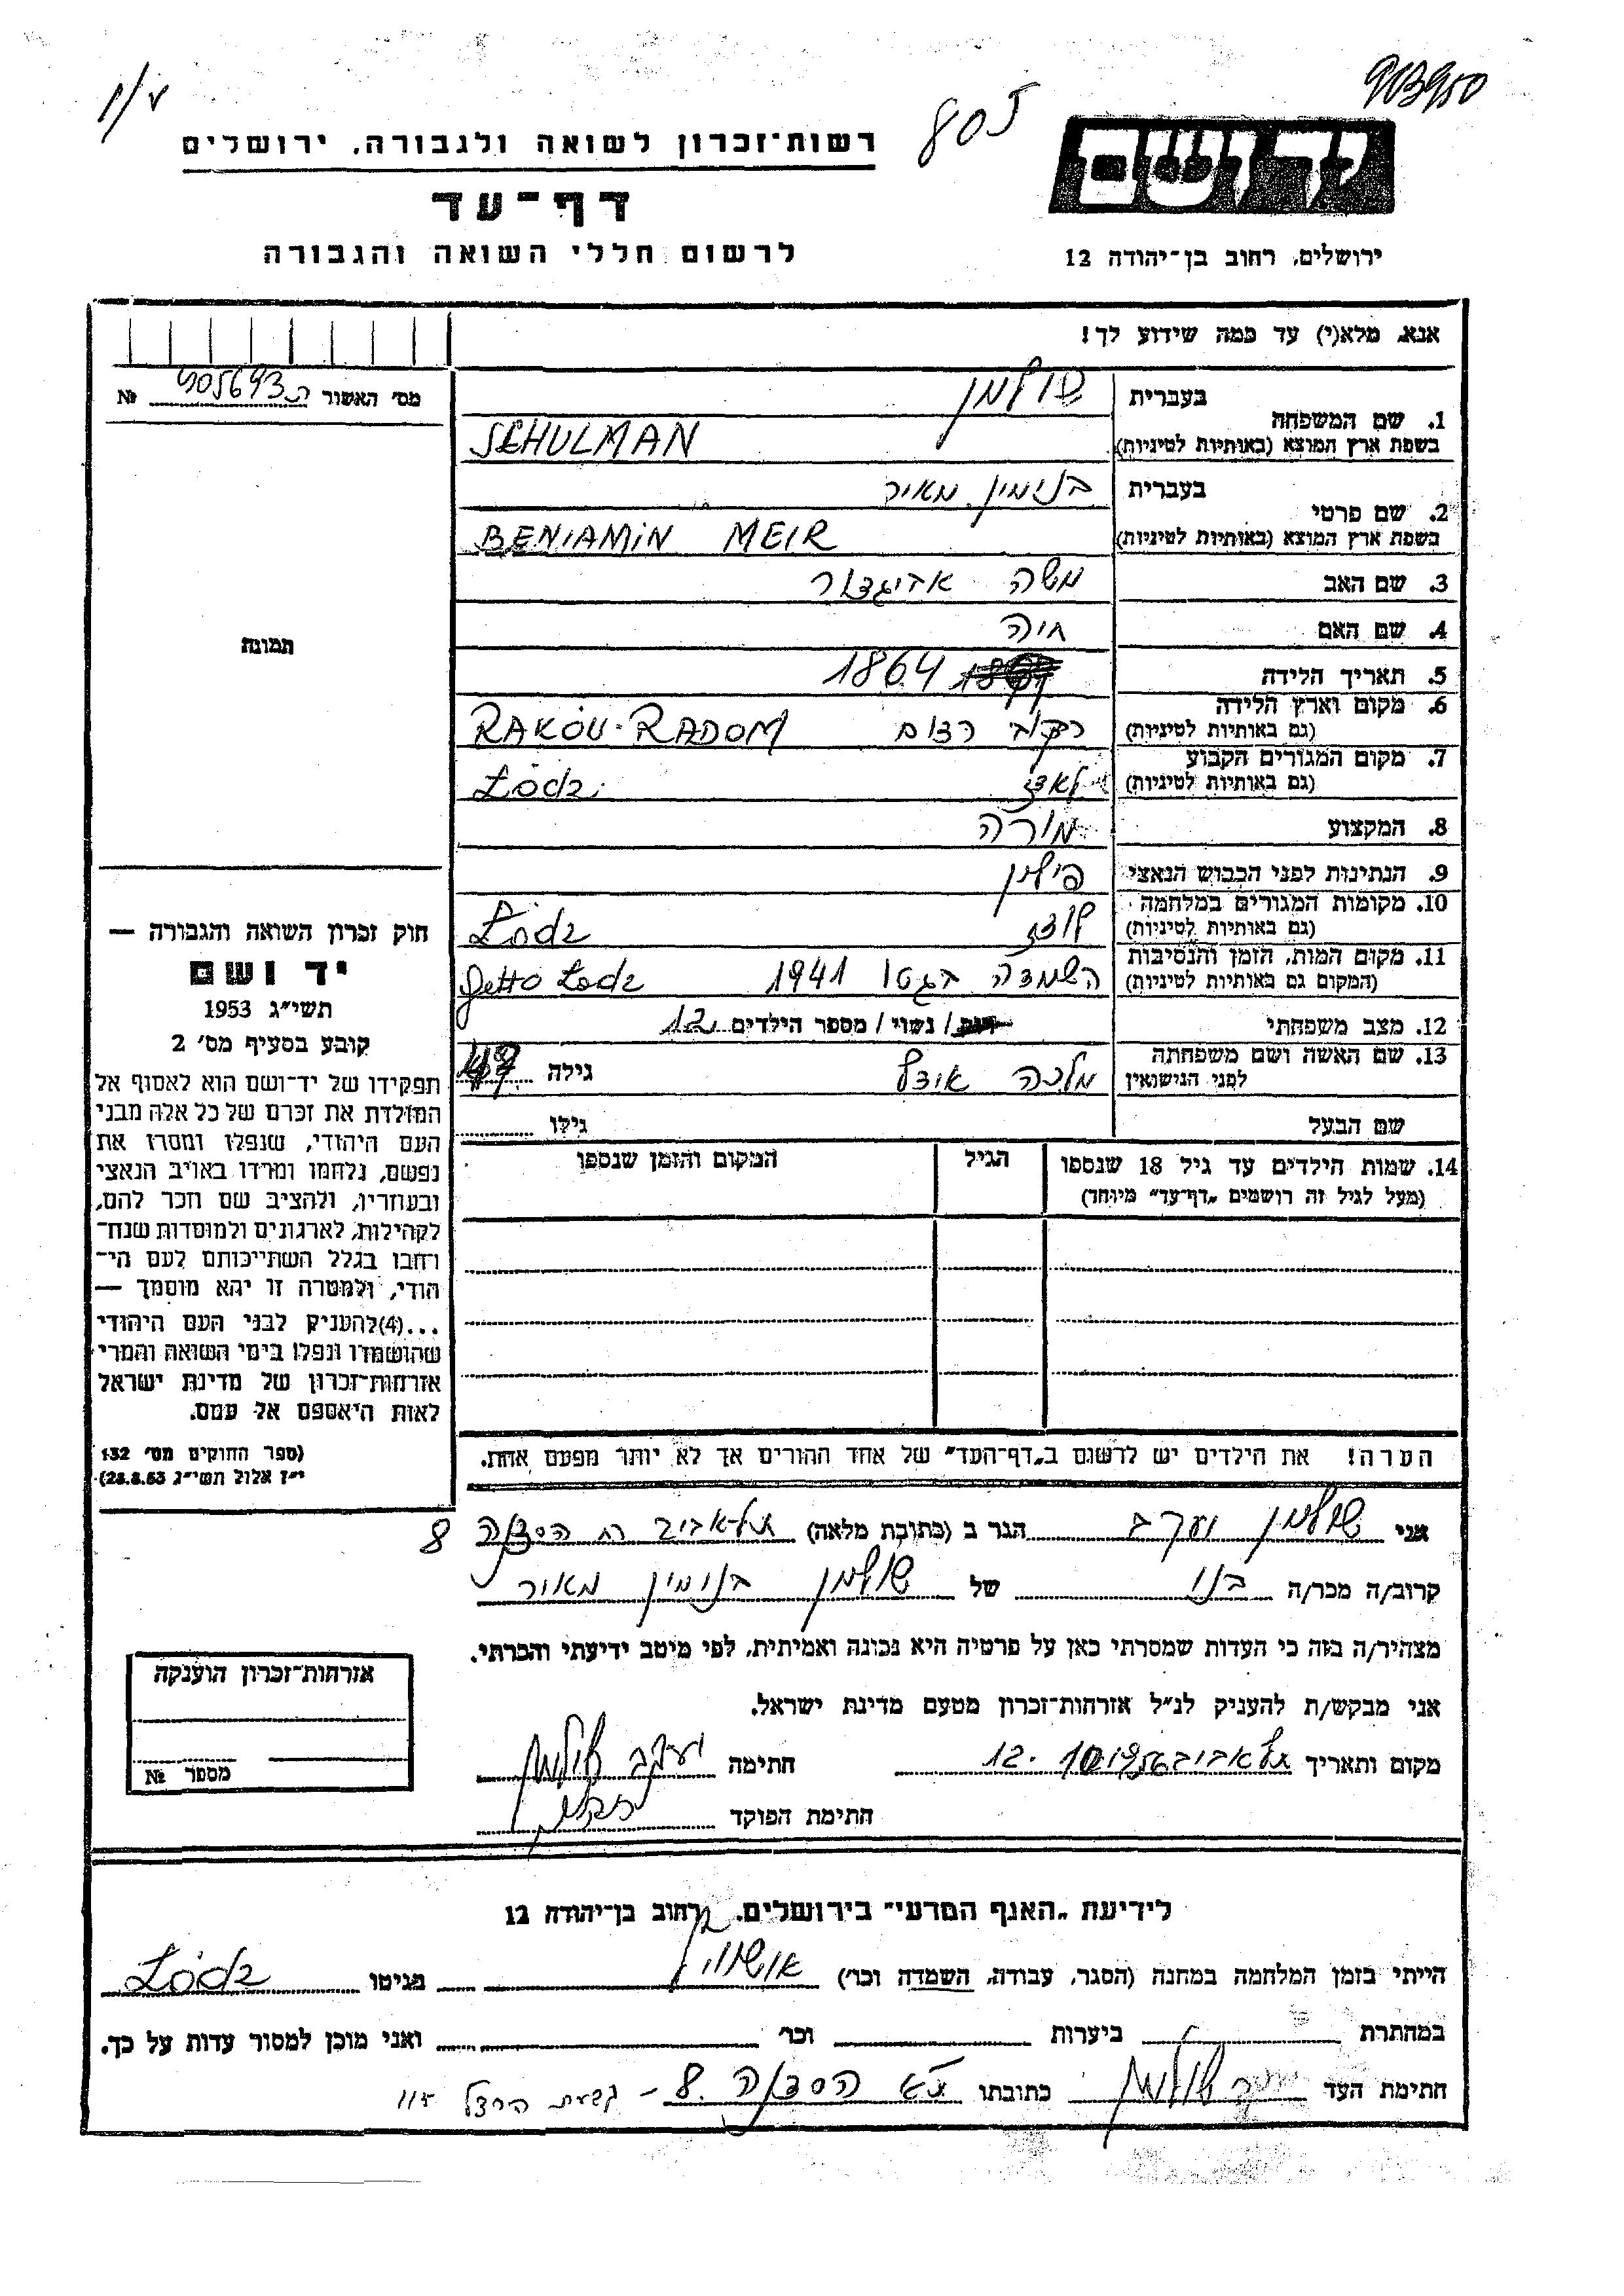 903950
805
יד ושם
רשות-זכרון לשואה ולגבורה, ירושלים
דף-עד
לרשום חללי השואה והגבורה
ירושלים, רחוב בן-יהודה 12
אנא, מלא(י) עד כמה שידוע לך!
מס' האשור №
1. שם המשפחה
בעברית שולמן
בשפת ארץ המוצא (באותיות לטיניות) SCHULMAN
2. שם פרטי
בעברית בנימין מאיר
בשפת ארץ המוצא (באותיות לטיניות) BENIAMIN MEIR
3. שם האב משה אביגדור
4. שם האם חיה
5. תאריך הלידה 1864
6. מקום וארץ הלידה
(גם באותיות לטיניות) רקוב רדום RAKÓW-RADOM
7. מקום המגורים הקבוע
(גם באותיות לטיניות) לאדז Łódz
8. המקצוע מורה
9. הנתינות לפני הכבוש הנאצי פולין
10. מקומות המגורים במלחמה
(גם באותיות לטיניות) לודז Łódz
11. מקום המות, הזמן והנסיבות
(המקום גם באותיות לטיניות) השמדה בגטו 1941 Getto Łodz
12. מצב משפחתי רוק / נשוי / מספר הילדים 12
13. שם האשה ושם משפחתה
לפני הנישואין מלכה גילה
שם הבעל גילו
14. שמות הילדים עד גיל 18 שנספו
(מעל לגיל זה רושמים „דף-עד" מיוחד)
הגיל
המקום והזמן שנספו
הערה! את הילדים יש לרשום ב„דף-העד" של אחד ההורים אך לא יותר מפעם אחת.
תמונה
חוק זכרון השואה והגבורה —
יד ושם
תשי"ג 1953
קובע בסעיף מס' 2
תפקידו של יד-ושם הוא לאסוף אל
המולדת את זכרם של כל אלה מבני
העם היהודי, שנפלו ומסרו את
נפשם, נלחמו ומרדו באויב הנאצי
ובעוזריו, ולהציב שם וזכר להם,
לקהילות, לארגונים ולמוסדות שנח-
רחבו בגלל השתייכותם לעם הי-
הודי, ולמטרה זו יהא מוסמך —
...(4)להעניק לבני העם היהודי
שהושמדו ונפלו בימי השואה והמרי
אזרחות-זכרון של מדינת ישראל
לאות היאספם אל עמם.
(ספר החוקים מס' 132
י"ז אלול תשי"ג 28.8.53)
אני שולמן יעקב הגר ב (כתובת מלאה) תל-אביב רח 8
קרוב/ה מכר/ה בנו של שולמן בנימין מאיר
מצהיר/ה בזה כי העדות שמסרתי כאן על פרטיה היא נכונה ואמיתית, לפי מיטב ידיעתי והכרתי.
אני מבקש/ת להעניק לנ"ל אזרחות-זכרון מטעם מדינת ישראל.
מקום ותאריך תל אביב חתימה יעקב שולמן
חתימת הפוקד
אזרחות-זכרון הוענקה
מספר №
לידיעת „האגף המדעי" בירושלים, רחוב בן-יהודה 12
הייתי בזמן המלחמה במחנה (הסגר, עבודה, השמדה וכו') אושוויץ בגיטו Łódz
במחתרת ביערות וכו' ואני מוכן למסור עדות על כך.
חתימת העד יעקב שולמן כתובתו ת"א 8 -